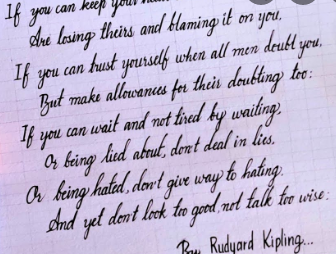 If you can keep your head
Are losing theirs and blaming it on you,
If you can trust yourself when all men doubt you,
But make allowances for their doubting too:
If you can wait and not tired by waiting,
Or being lied about, don't deal in lies,
Or being hated, don't give way to hating,
And yet don't look too good, not talk too wise:
By Rudyard Kipling...